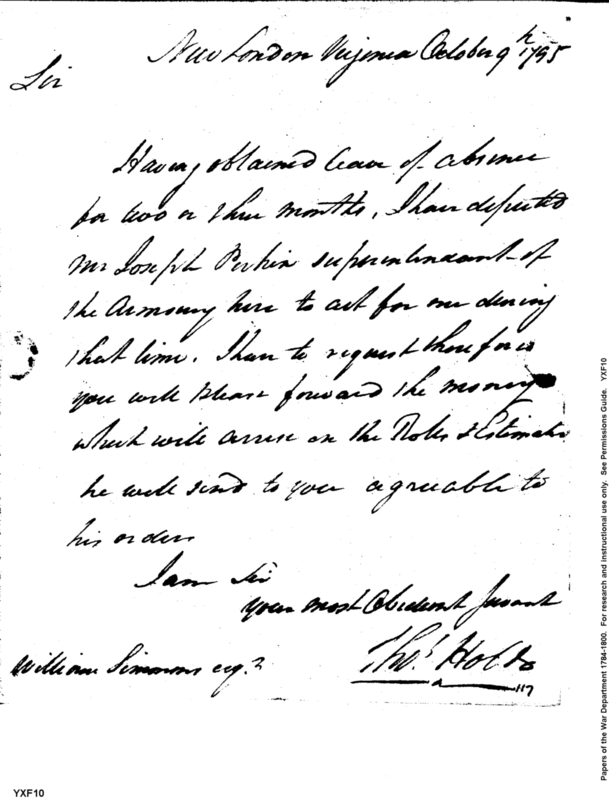 New London Virginia October 9th 1795
Sir
Having obtained leave of absence
for two or three months, I have deputed
Mr Joseph Perkin superintendant of
the Armoury here to act for me during
that time. I have to request therefore
you will please forward the money
which will arrise on the Rolls & Estimates
he will send to you agreeable to
his orders
I am Sir
your most Obedient Servant
Thos Holt
William Simmons esqr
117
Papers of the War Department 1784-1800. For research and instructional use only. See Permissions Guide. YXF10
YXF10